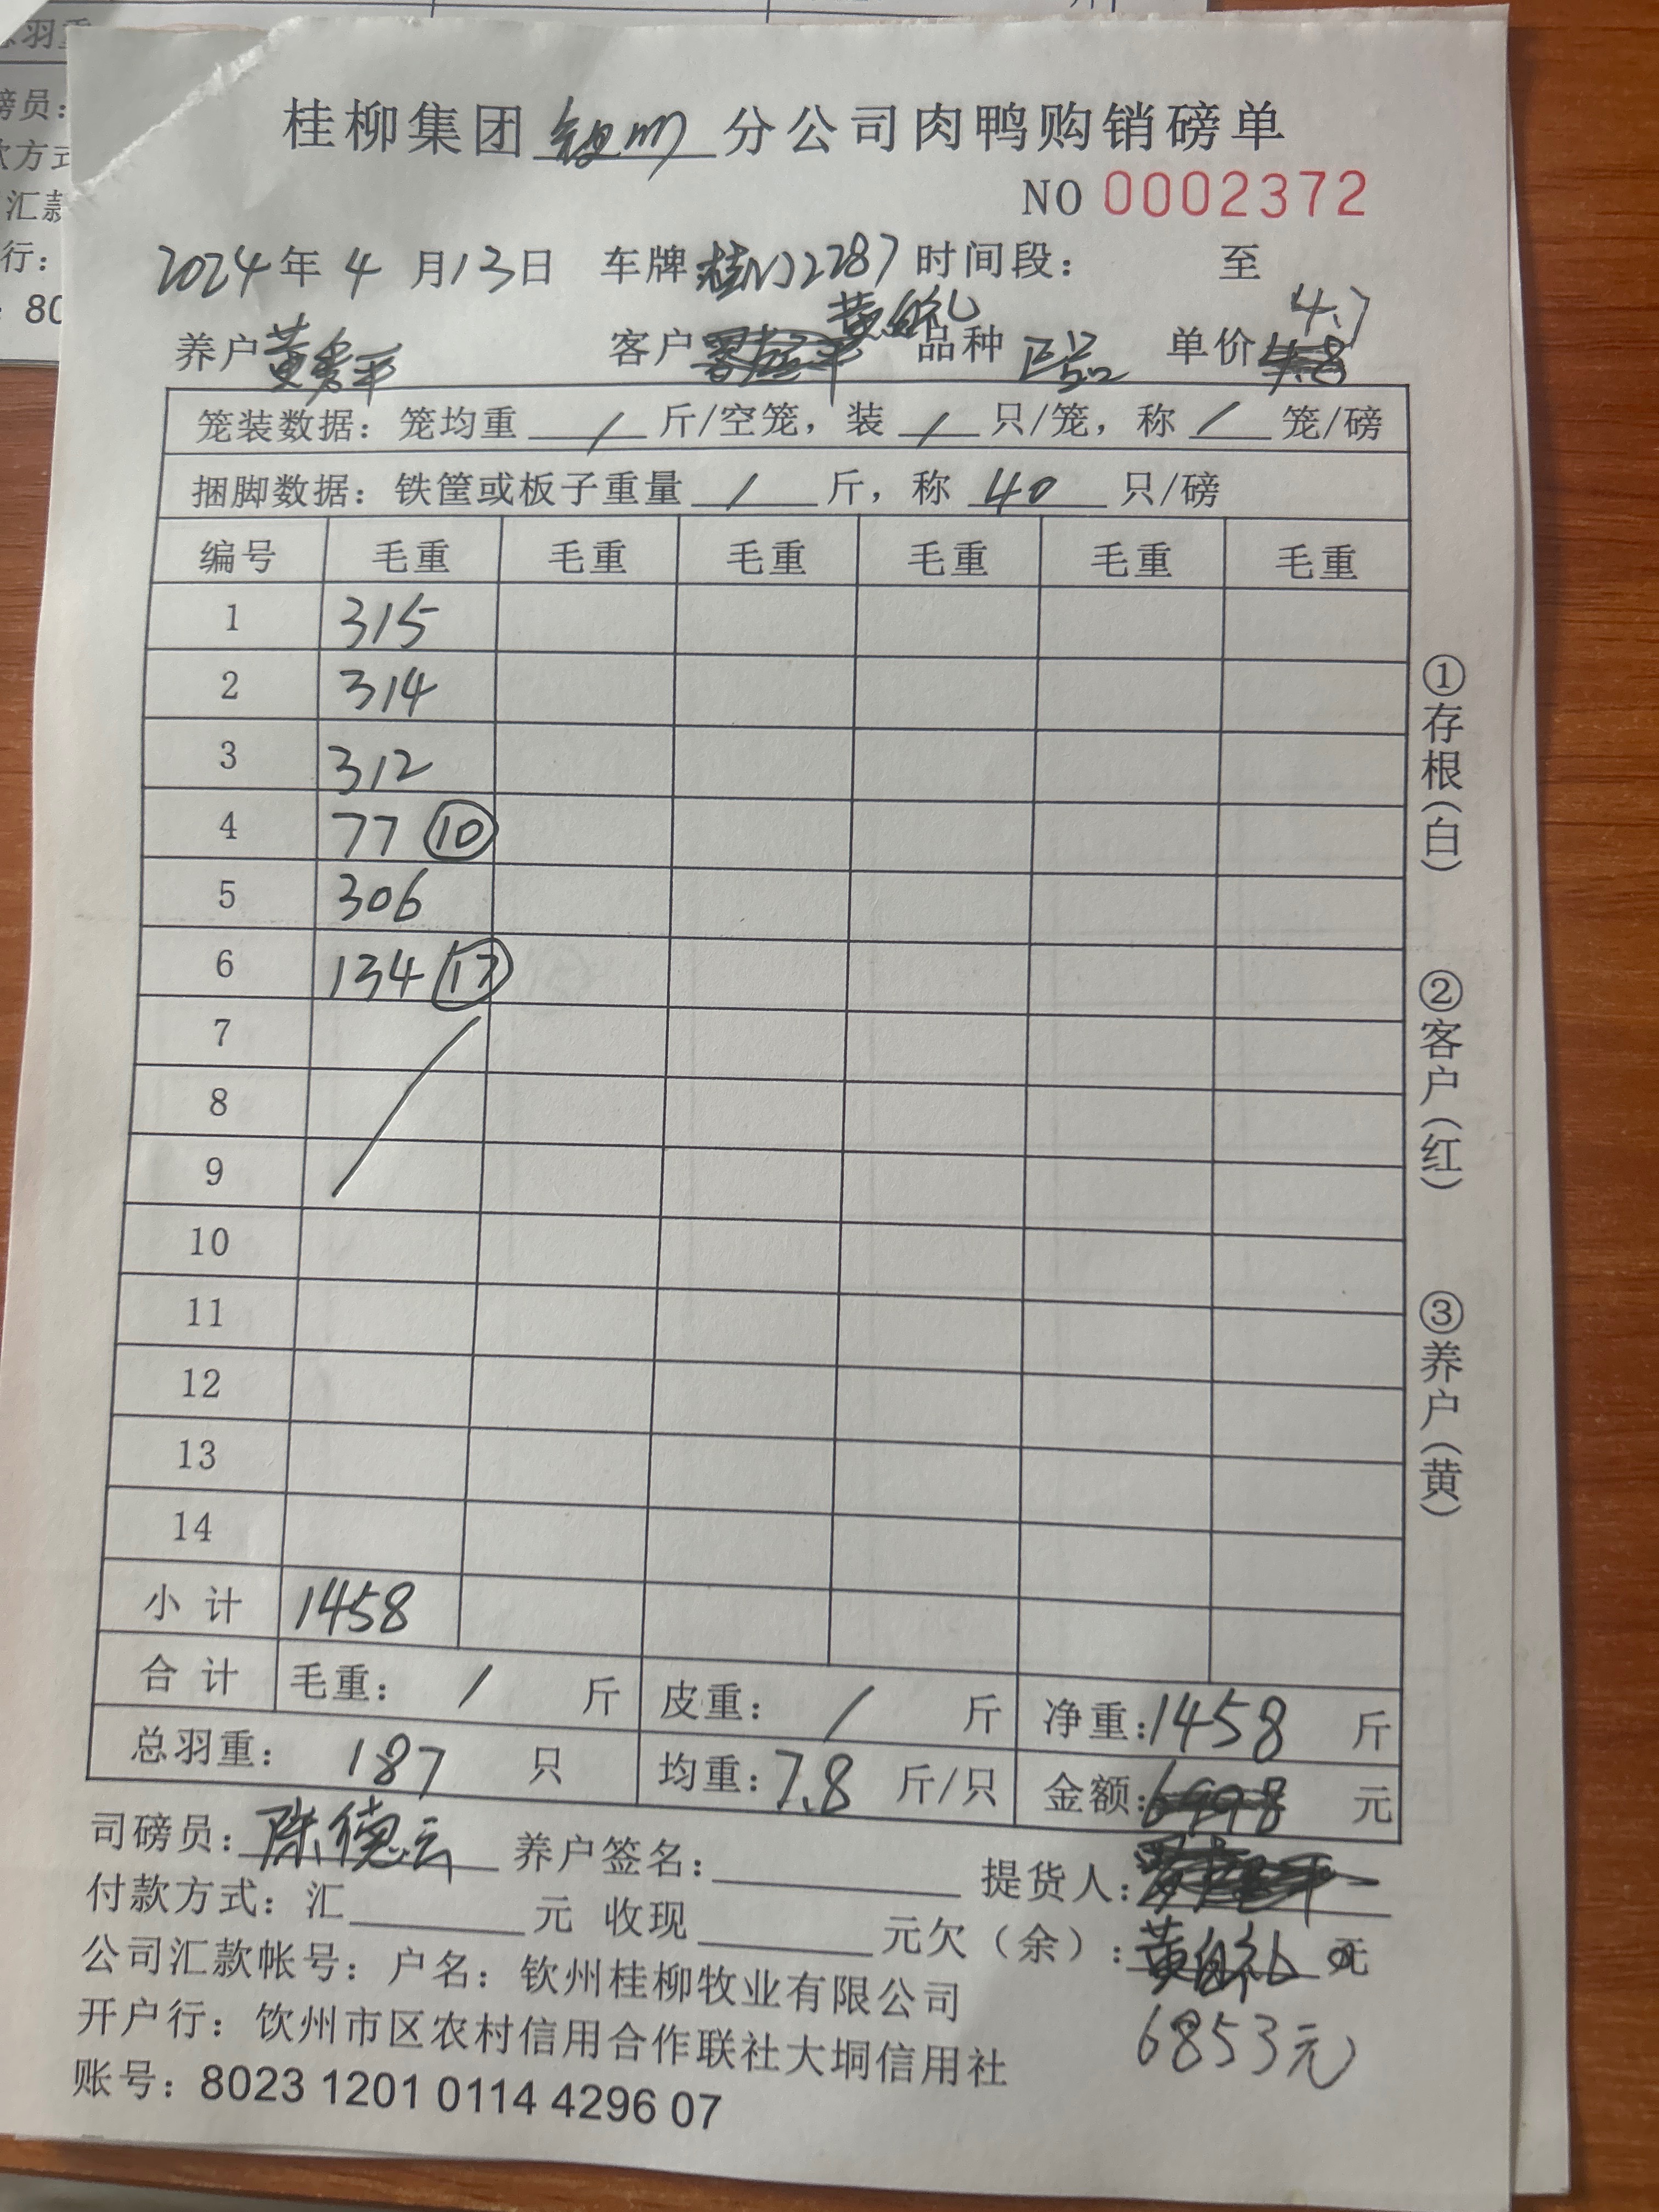 总羽重
磅员：
款方式
汇款
行：
：80
桂柳集团钦州分公司肉鸭购销磅单
NO 0002372
2024年4月13日 车牌:桂N12287 时间段： 至
黄自礼 4.7
养户黄秀平 客户 品种 正品 单价
笼装数据：笼均重 / 斤/空笼，装 / 只/笼，称 / 笼/磅
捆脚数据：铁筐或板子重量 / 斤，称 40 只/磅
编号 毛重 毛重 毛重 毛重 毛重 毛重
1 315
2 314
3 312
4 77 ⑩
5 306
6 134 ⑰
7
8
9
10
11
12
13
14
小计 1458
合计 毛重： / 斤 皮重： / 斤 净重：1458 斤
总羽重： 187 只 均重：7.8 斤/只 金额：6998 元
司磅员：陈德云 养户签名： 提货人：
付款方式：汇 元 收现 元欠（余）：黄自礼 元
公司汇款帐号：户名：钦州桂柳牧业有限公司
开户行：饮州市区农村信用合作联社大垌信用社
6853元
账号：8023 1201 0114 4296 07
①存根（白）
②客户（红）
③养户（黄）